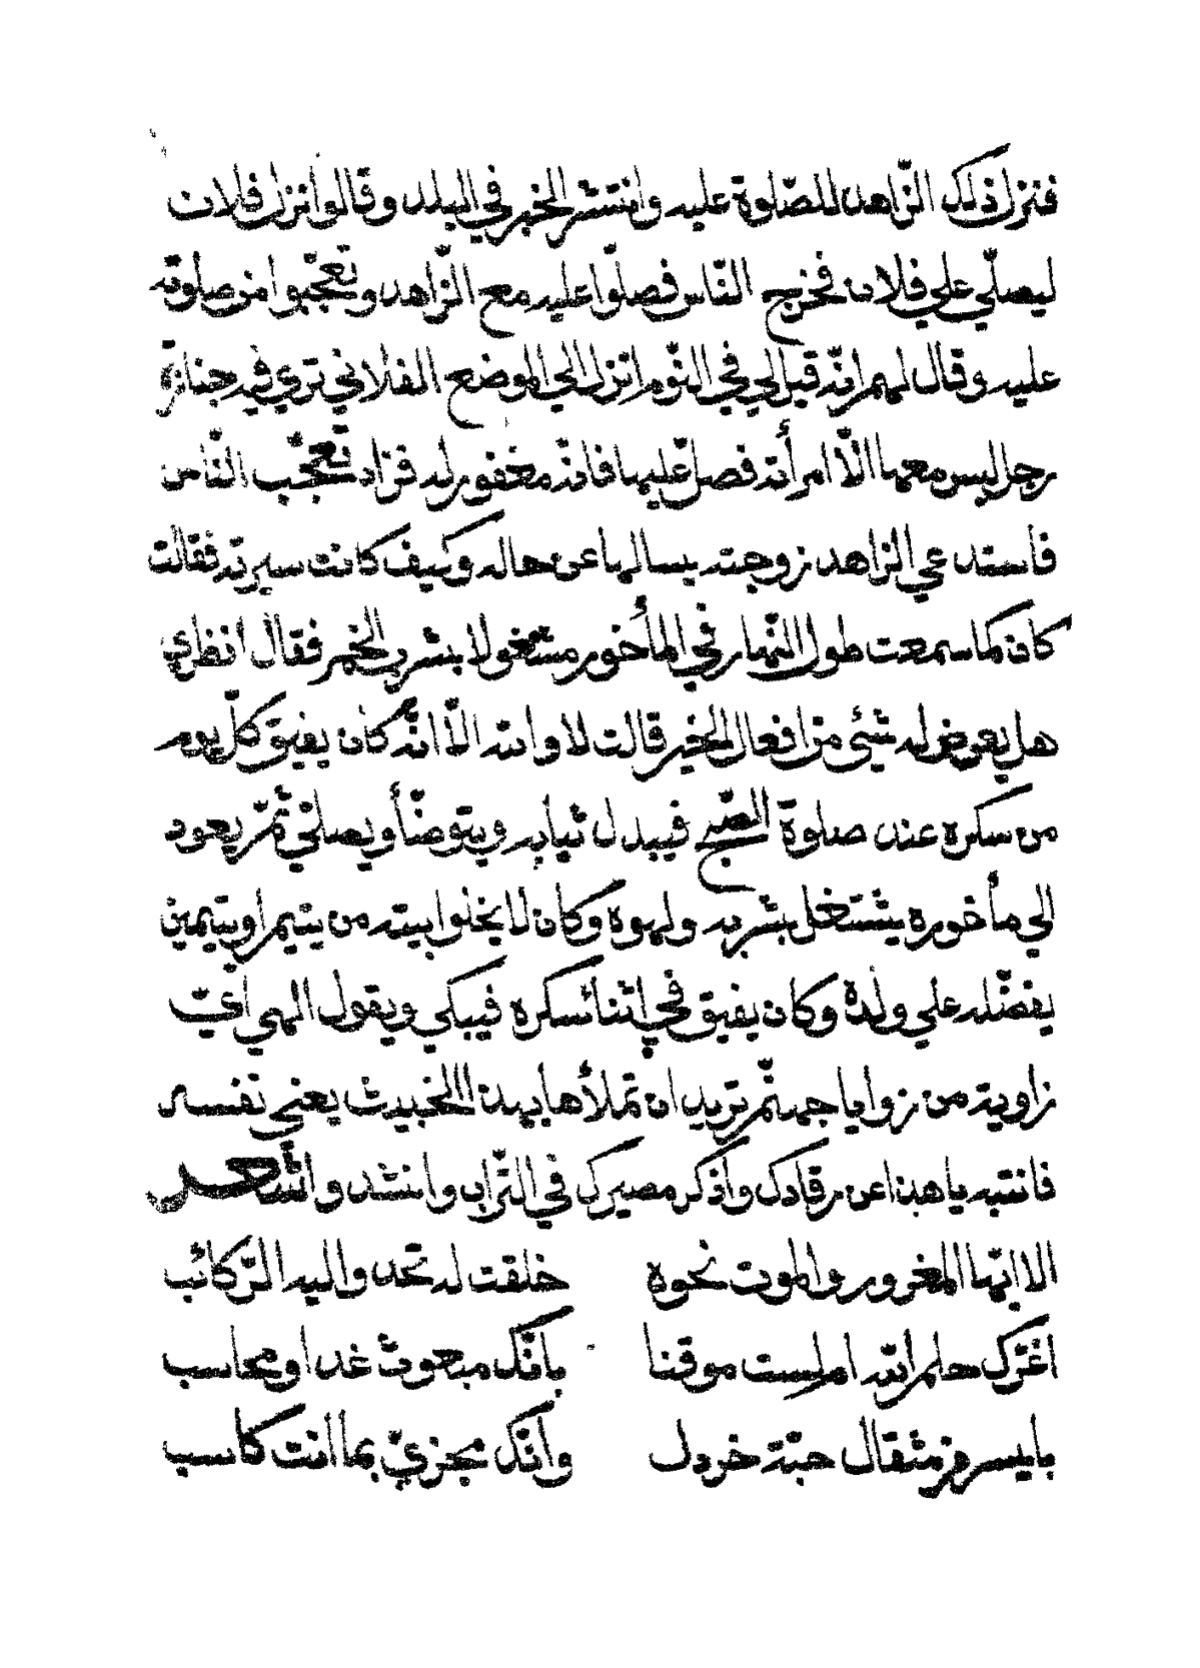 فنزل ذلك الزّاهد للصّلوة عليه وانتشر الخبر في البلد وقالوا نزل فلان
ليصلّي علي فلان فخرج النّاس فصلّوا عليه مع الزّاهد وتعجّبوا من صلوته
عليه وقال لهم انّه قيل لي في النّوم انزل الي الموضع الفلاني تري فيه جنازة
رجل ليس معها الّا امرأته فصلّ عليها فانّه مغفور له فزاد تعجّب النّاس
فاستدعي الزاهد زوجته يسالها عن حاله وكيف كانت سيرته فقالت
كان كما سمعت طول النّهار في المأخور مشغولا بشرب الخمر فقال انظري
هل يعرض له شيئ من افعال الخير قالت لا والله الّا انّه كان يفيق كلّ يوم
من سكره عند صلوة الصّبح فيبدل ثيابه ويتوضّأ ويصلّي ثمّ يعود
الي مأخوره يشتغل بشربه ولهوه وكان لا يخلوا بيته من يتيم او يتيمين
يفضّله علي ولده وكان يفيق في اثناء سكره فيبكي ويقول الهي ايّ
زاوية من زوايا جهنّم تريد ان تملأها بهذا الخبيث يعني نفسه
فانتبه يا هذا عن رقادك واذكر مصيرك في التّراب وانشد واشعر
الا ايّها المغرور والموت نحوه خلقت له تحد واليه الرّكائب
اغرّك حلم الله ام لست موقنا بانّك مبعوث غدا ومحاسب
بايسر من مثقال حبّة خردل وانّك مجزيّ بما انت كاسب